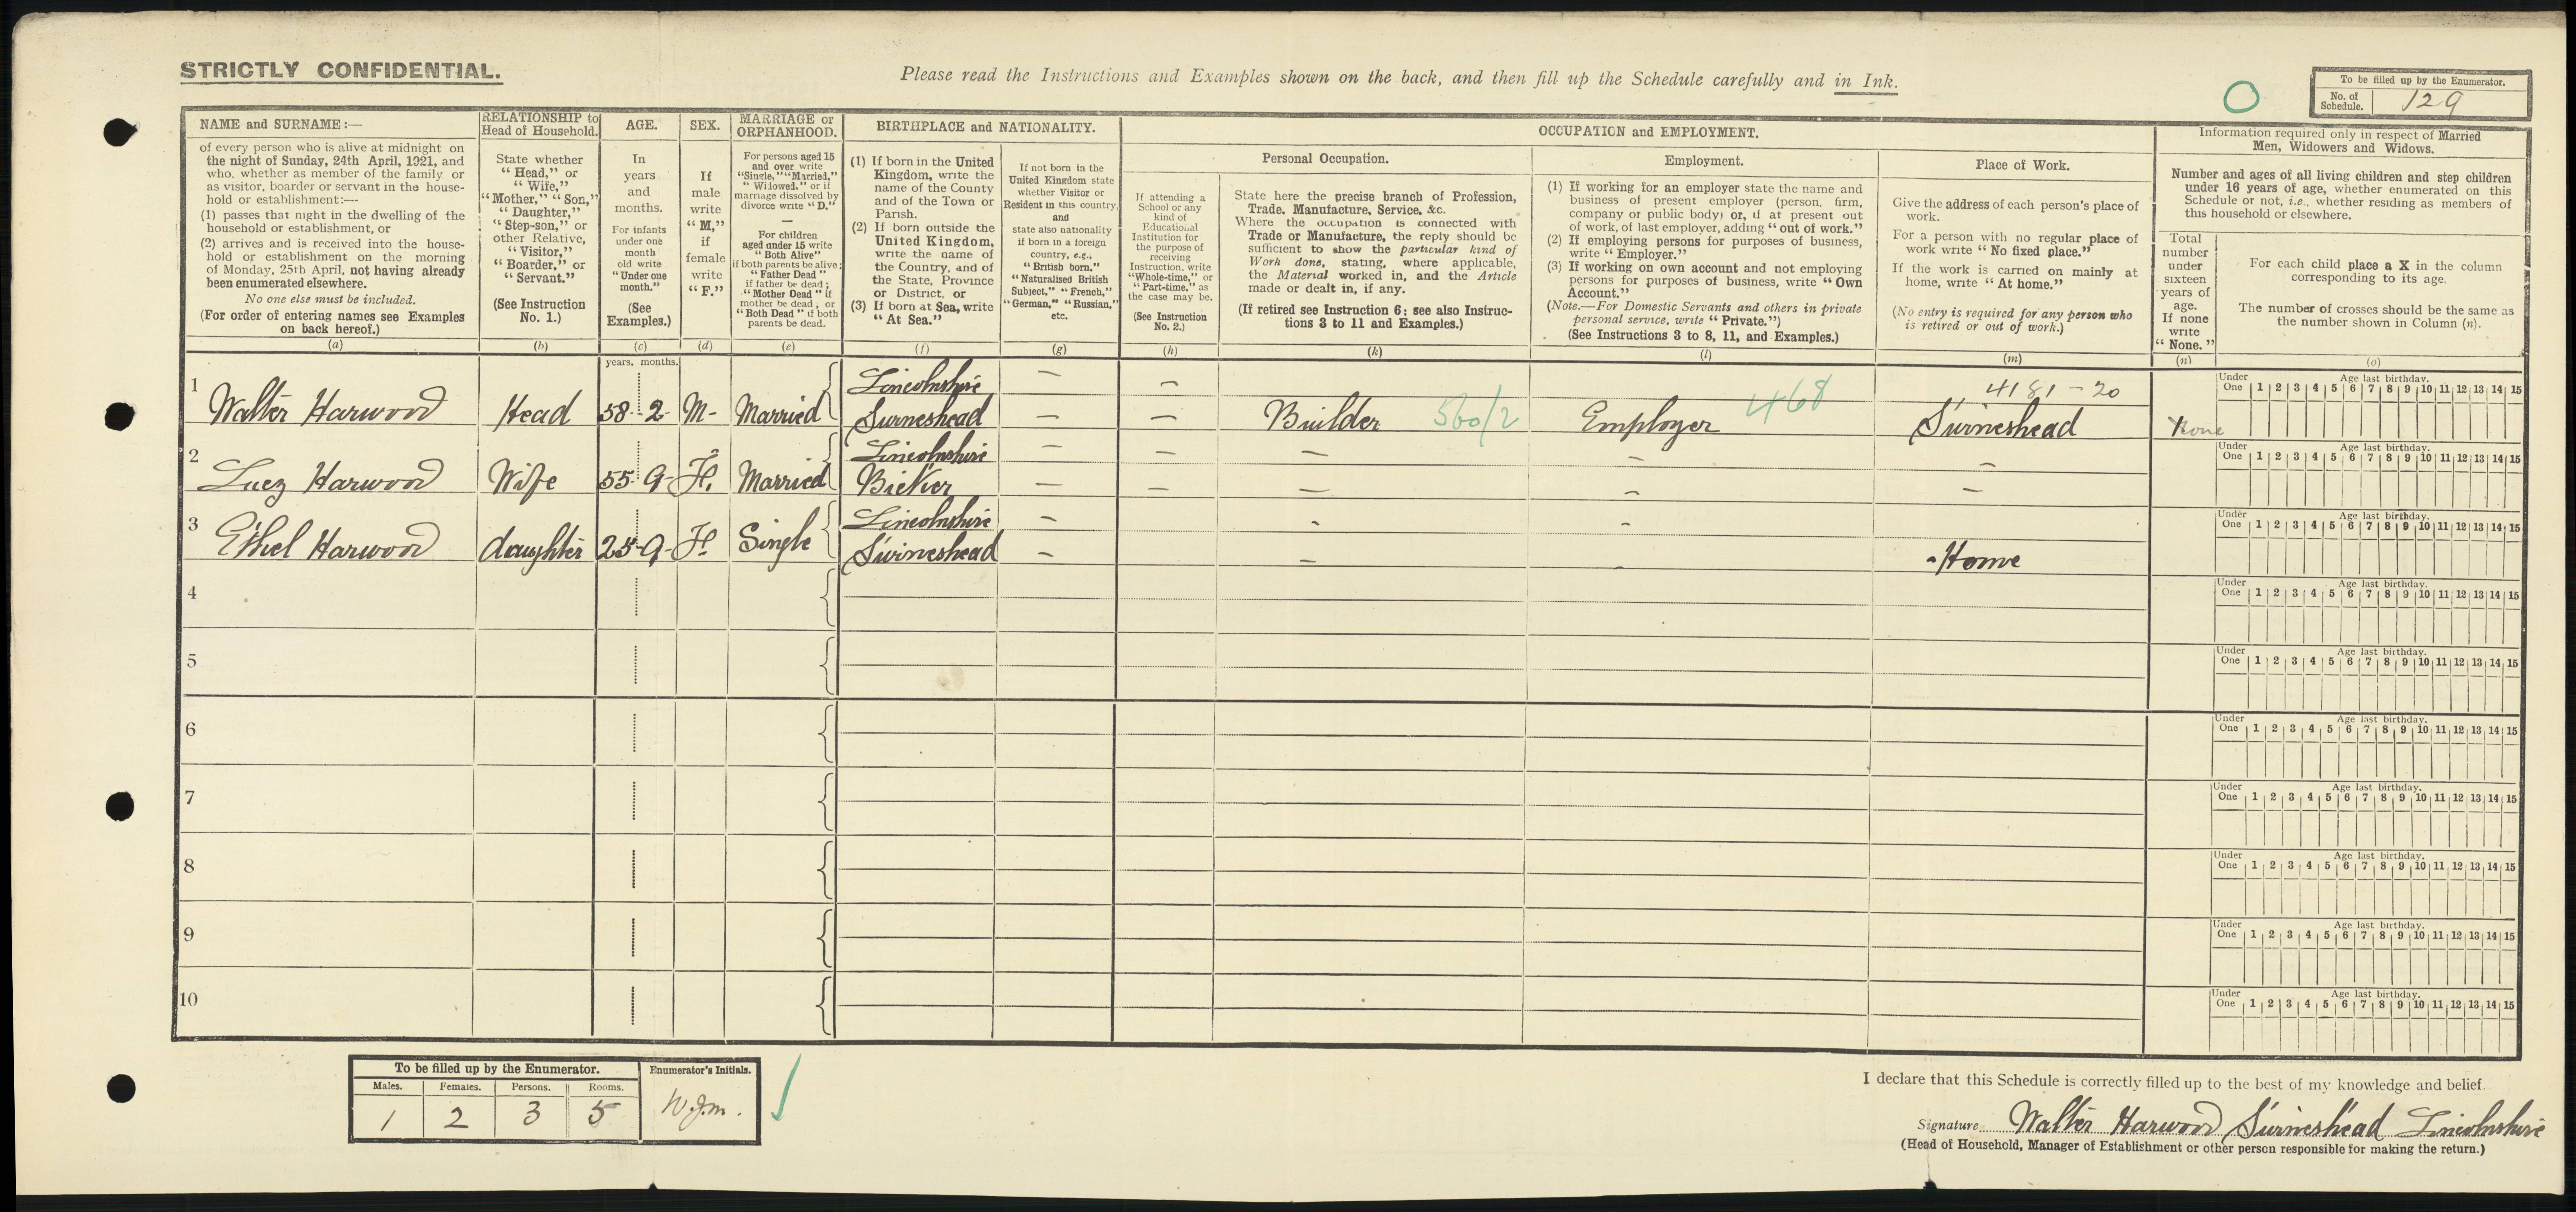 STRICTLY CONFIDENTIAL.
Please read the Instructions and Examples shown on the back, and then fill up the Schedule carefully and in Ink.
To be filled up by the Enumerator.
No. of Schedule. 129
NAME and SURNAME:—
of every person who is alive at midnight on
the night of Sunday, 24th April, 1921, and
who, whether as member of the family or
as visitor, boarder or servant in the house-
hold or establishment:—
(1) passes that night in the dwelling of the
household or establishment, or
(2) arrives and is received into the house-
hold or establishment on the morning
of Monday, 25th April, not having already
been enumerated elsewhere.
No one else must be included.
(For order of entering names see Examples
on back hereof.)
(a)
RELATIONSHIP to
Head of Household.
State whether
"Head," or
"Wife,"
"Mother," "Son,"
"Daughter,"
"Step-son," or
other Relative,
"Visitor,"
"Boarder," or
"Servant."
(See Instruction
No. 1.)
(b)
AGE.
In
years
and
months.
For infants
under one
month
old write
"Under one
month."
(See
Examples.)
(c)
SEX.
If
male
write
"M,"
if
female
write
"F."
(d)
MARRIAGE or
ORPHANHOOD.
For persons aged 15
and over write
"Single," "Married,"
"Widowed," or if
marriage dissolved by
divorce write "D."
—
For children
aged under 15 write
"Both Alive"
if both parents be alive;
"Father Dead"
if father be dead;
"Mother Dead" if
mother be dead, or
"Both Dead" if both
parents be dead.
(e)
BIRTHPLACE and NATIONALITY.
(1) If born in the United
Kingdom, write the
name of the County
and of the Town or
Parish.
(2) If born outside the
United Kingdom,
write the name of
the Country, and of
the State, Province
or District, or
(3) If born at Sea, write
"At Sea."
(f)
If not born in the
United Kingdom state
whether Visitor or
Resident in this country,
and
state also nationality
if born in a foreign
country, e.g.,
"British born."
"Naturalised British
Subject," "French,"
"German," "Russian,"
etc.
(g)
OCCUPATION and EMPLOYMENT.
Personal Occupation.
If attending a
School or any
kind of
Educational
Institution for
the purpose of
receiving
Instruction, write
"Whole-time," or
"Part-time," as
the case may be.
(See Instruction
No. 2.)
(h)
State here the precise branch of Profession,
Trade, Manufacture, Service, &c.
Where the occupation is connected with
Trade or Manufacture, the reply should be
sufficient to show the particular kind of
Work done, stating, where applicable,
the Material worked in, and the Article
made or dealt in, if any.
(If retired see Instruction 6; see also Instruc-
tions 3 to 11 and Examples.)
(k)
Employment.
(1) If working for an employer state the name and
business of present employer (person, firm,
company or public body) or, if at present out
of work, of last employer, adding "out of work."
(2) If employing persons for purposes of business,
write "Employer."
(3) If working on own account and not employing
persons for purposes of business, write "Own
Account."
(Note.—For Domestic Servants and others in private
personal service, write "Private.")
(See Instructions 3 to 8, 11, and Examples.)
(l)
Place of Work.
Give the address of each person's place of
work.
For a person with no regular place of
work write "No fixed place."
If the work is carried on mainly at
home, write "At home."
(No entry is required for any person who
is retired or out of work.)
(m)
Information required only in respect of Married
Men, Widowers and Widows.
Number and ages of all living children and step children
under 16 years of age, whether enumerated on this
Schedule or not, i.e., whether residing as members of
this household or elsewhere.
Total
number
under
sixteen
years of
age.
If none
write
"None."
(n)
For each child place a X in the column
corresponding to its age.
The number of crosses should be the same as
the number shown in Column (n).
(o)
years. months.
1 Walter Harwood Head 58 2 M- Married Lincolnshire Swineshead — — — — Builder 560/2 Employer 468 4181-20 Swineshead None
Under One Age last birthday. 1 2 3 4 5 6 7 8 9 10 11 12 13 14 15
2 Lucy Harwood Wife 55 9 F. Married Lincolnshire Bicker — — — — — — — — — —
Under One Age last birthday. 1 2 3 4 5 6 7 8 9 10 11 12 13 14 15
3 Ethel Harwood daughter 25 9 F. Single Lincolnshire Swineshead — — - — - - - Home
Under One Age last birthday. 1 2 3 4 5 6 7 8 9 10 11 12 13 14 15
4
Under One Age last birthday. 1 2 3 4 5 6 7 8 9 10 11 12 13 14 15
5
Under One Age last birthday. 1 2 3 4 5 6 7 8 9 10 11 12 13 14 15
6
Under One Age last birthday. 1 2 3 4 5 6 7 8 9 10 11 12 13 14 15
7
Under One Age last birthday. 1 2 3 4 5 6 7 8 9 10 11 12 13 14 15
8
Under One Age last birthday. 1 2 3 4 5 6 7 8 9 10 11 12 13 14 15
9
Under One Age last birthday. 1 2 3 4 5 6 7 8 9 10 11 12 13 14 15
10
Under One Age last birthday. 1 2 3 4 5 6 7 8 9 10 11 12 13 14 15
To be filled up by the Enumerator.
Males. Females. Persons. Rooms.
1 2 3 5
Enumerator's Initials.
W.J.M.
I declare that this Schedule is correctly filled up to the best of my knowledge and belief.
Signature Walter Harwood Swineshead Lincolnshire
(Head of Household, Manager of Establishment or other person responsible for making the return.)